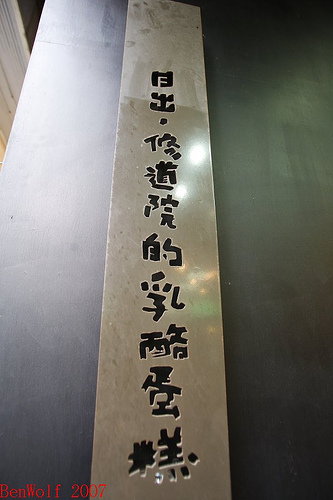 日出·修道院的乳酪蛋糕
BenWolf 2007